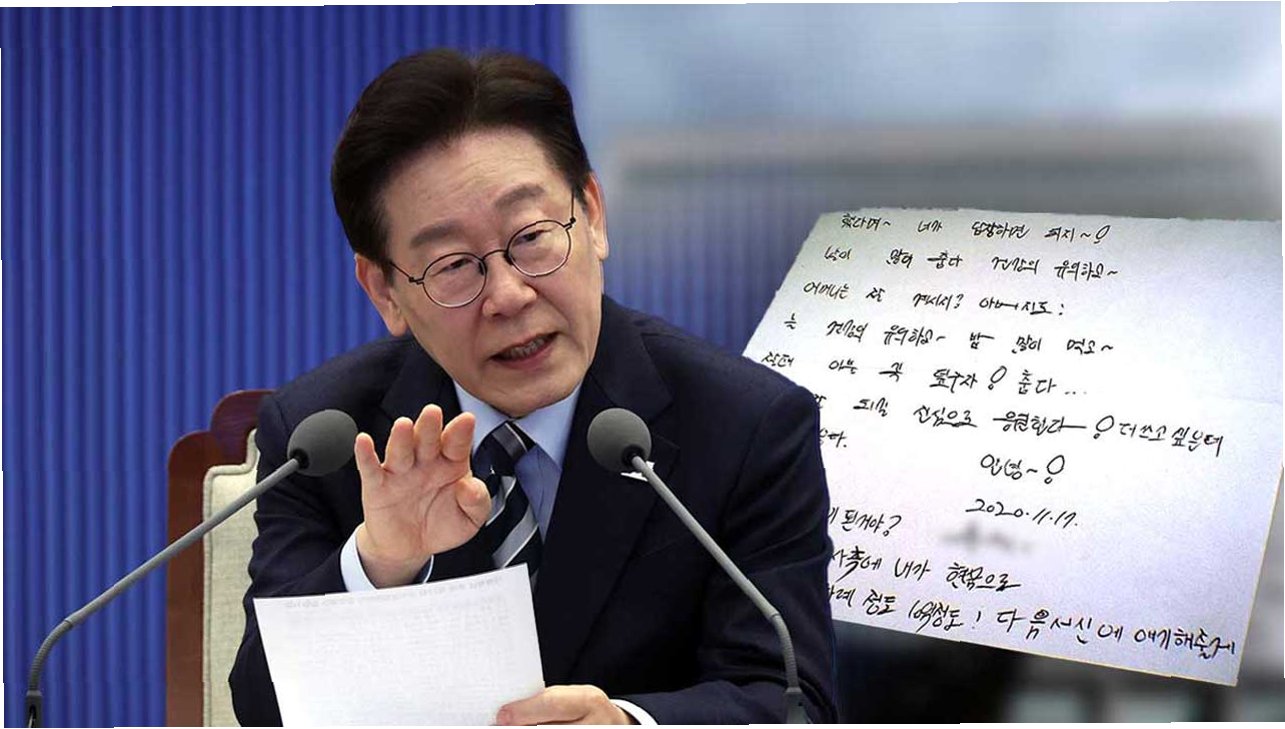 했다며~ 너가 답장하면 되지~!
날이 많이 춥다 건강의 유의하고~
어머니는 잘 계시지? 아버지도:
는 건강의 유의하고~ 밥 많이 먹고~
춥다...
진심으로 응원한다! 더쓰고 싶은데
안녕~!
2020.11.17.
된거야?
내가 현금으로
정도 1억정도! 다음서신에 얘기해줄게